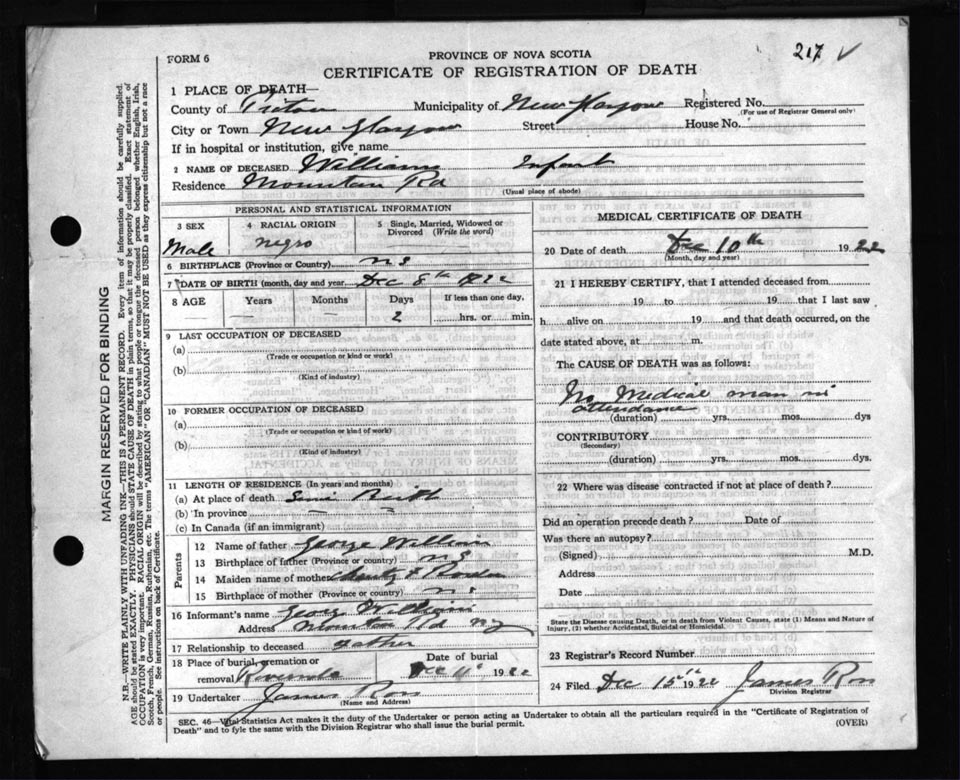 217 ✓
FORM 6
PROVINCE OF NOVA SCOTIA
CERTIFICATE OF REGISTRATION OF DEATH
1 PLACE OF DEATH—
County of Pictou Municipality of New Glasgow Registered No.
(For use of Registrar General only)
City or Town New Glasgow Street House No.
If in hospital or institution, give name
2 NAME OF DECEASED William Infant
Residence Mountain Rd
(Usual place of abode)
PERSONAL AND STATISTICAL INFORMATION
3 SEX 4 RACIAL ORIGIN 5 Single, Married, Widowed or Divorced (Write the word)
Male negro
6 BIRTHPLACE (Province or Country) N S
7 DATE OF BIRTH (month, day and year) Dec 8th 1922
8 AGE Years Months Days If less than one day,
— — 2 hrs. or min.
9 LAST OCCUPATION OF DECEASED
(a)
(Trade or occupation or kind or work)
(b)
(Kind of industry)
10 FORMER OCCUPATION OF DECEASED
(a)
(Trade or occupation or kind of work)
(b)
(Kind of industry)
11 LENGTH OF RESIDENCE (In years and months)
(a) At place of death Birth
(b) In province — —
(c) In Canada (if an immigrant)
Parents
12 Name of father George William
13 Birthplace of father (Province or country) N S
14 Maiden name of mother
15 Birthplace of mother (Province or country) N S
16 Informant's name George William
Address Mountain Rd N G
17 Relationship to deceased Father
18 Place of burial, cremation or removal Date of burial
Dec 11 1922
19 Undertaker James Ross
(Name and Address)
MEDICAL CERTIFICATE OF DEATH
20 Date of death Dec 10th 1922
(Month, day and year)
21 I HEREBY CERTIFY, that I attended deceased from
19 to 19 that I last saw
h alive on 19 and that death occurred, on the
date stated above, at m.
The CAUSE OF DEATH was as follows:
No Medical man in
attendance
(duration) yrs. mos. dys
CONTRIBUTORY
(Secondary)
(duration) yrs. mos. dys.
22 Where was disease contracted if not at place of death?
Did an operation precede death? Date of
Was there an autopsy?
(Signed) M.D.
Address
Date
State the Disease causing Death, or in death from Violent Causes, state (1) Means and Nature of
Injury, (2) whether Accidental, Suicidal or Homicidal.
23 Registrar's Record Number
24 Filed Dec 15th 1922 James Ross
Division Registrar
SEC. 46—Vital Statistics Act makes it the duty of the Undertaker or person acting as Undertaker to obtain all the particulars required in the "Certificate of Registration of
Death" and to fyle the same with the Division Registrar who shall issue the burial permit. (OVER)
MARGIN RESERVED FOR BINDING
N.B.—WRITE PLAINLY WITH UNFADING INK—THIS IS A PERMANENT RECORD. Every item of information should be carefully supplied.
AGE should be stated EXACTLY. PHYSICIANS should STATE CAUSE OF DEATH in plain terms, so that it may be properly classified. Exact statement of
OCCUPATION is very important. RACIAL ORIGIN will be described by stating to what people or tongue the deceased person belonged whether English, Irish,
Scotch, French, German, Russian, Ruthenian, etc. The terms "AMERICAN" OR "CANADIAN" MUST NOT BE USED as they express citizenship but not a race
or people. See instructions on back of Certificate.